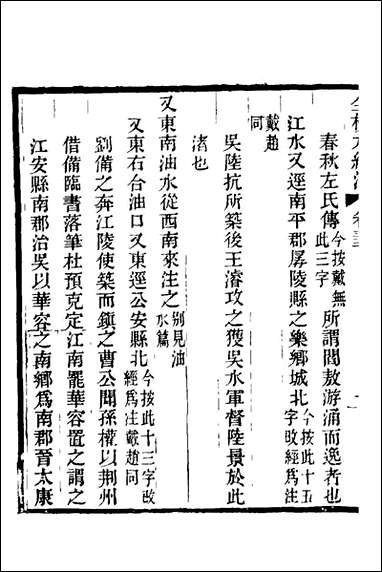 春秋左氏傳今按戴無此三字所謂閻敖游涌而逸者也
江水又逕南平郡孱陵縣之樂鄉城北今按此十五字改經爲注
戴趙同
吳陸抗所築後王濬攻之獲吳水軍督陸景於此
渚也
又東南油水從西南來注之別見油水篇
又東右合油口又東逕公安縣北今按此十三字改經爲注戴趙同
劉備之奔江陵使築而鎭之曹公聞孫權以荆州
借備臨書落筆杜預克定江南罷華容置之謂之
江安縣南郡治吳以華容之南鄉爲南郡晉太康